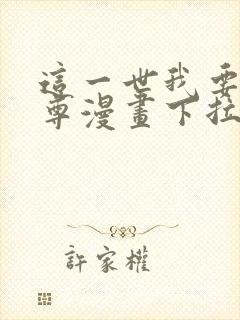 這一世我要
尊漫畫下拉
許家權